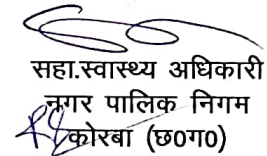 सहा.स्वास्थ्य अधिकारी
नगर पालिक निगम
कोरबा (छ०ग०)